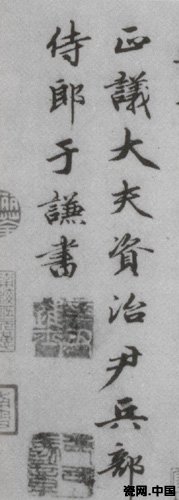 正議大夫資治尹兵部
侍郎于謙書
瓷网.中国